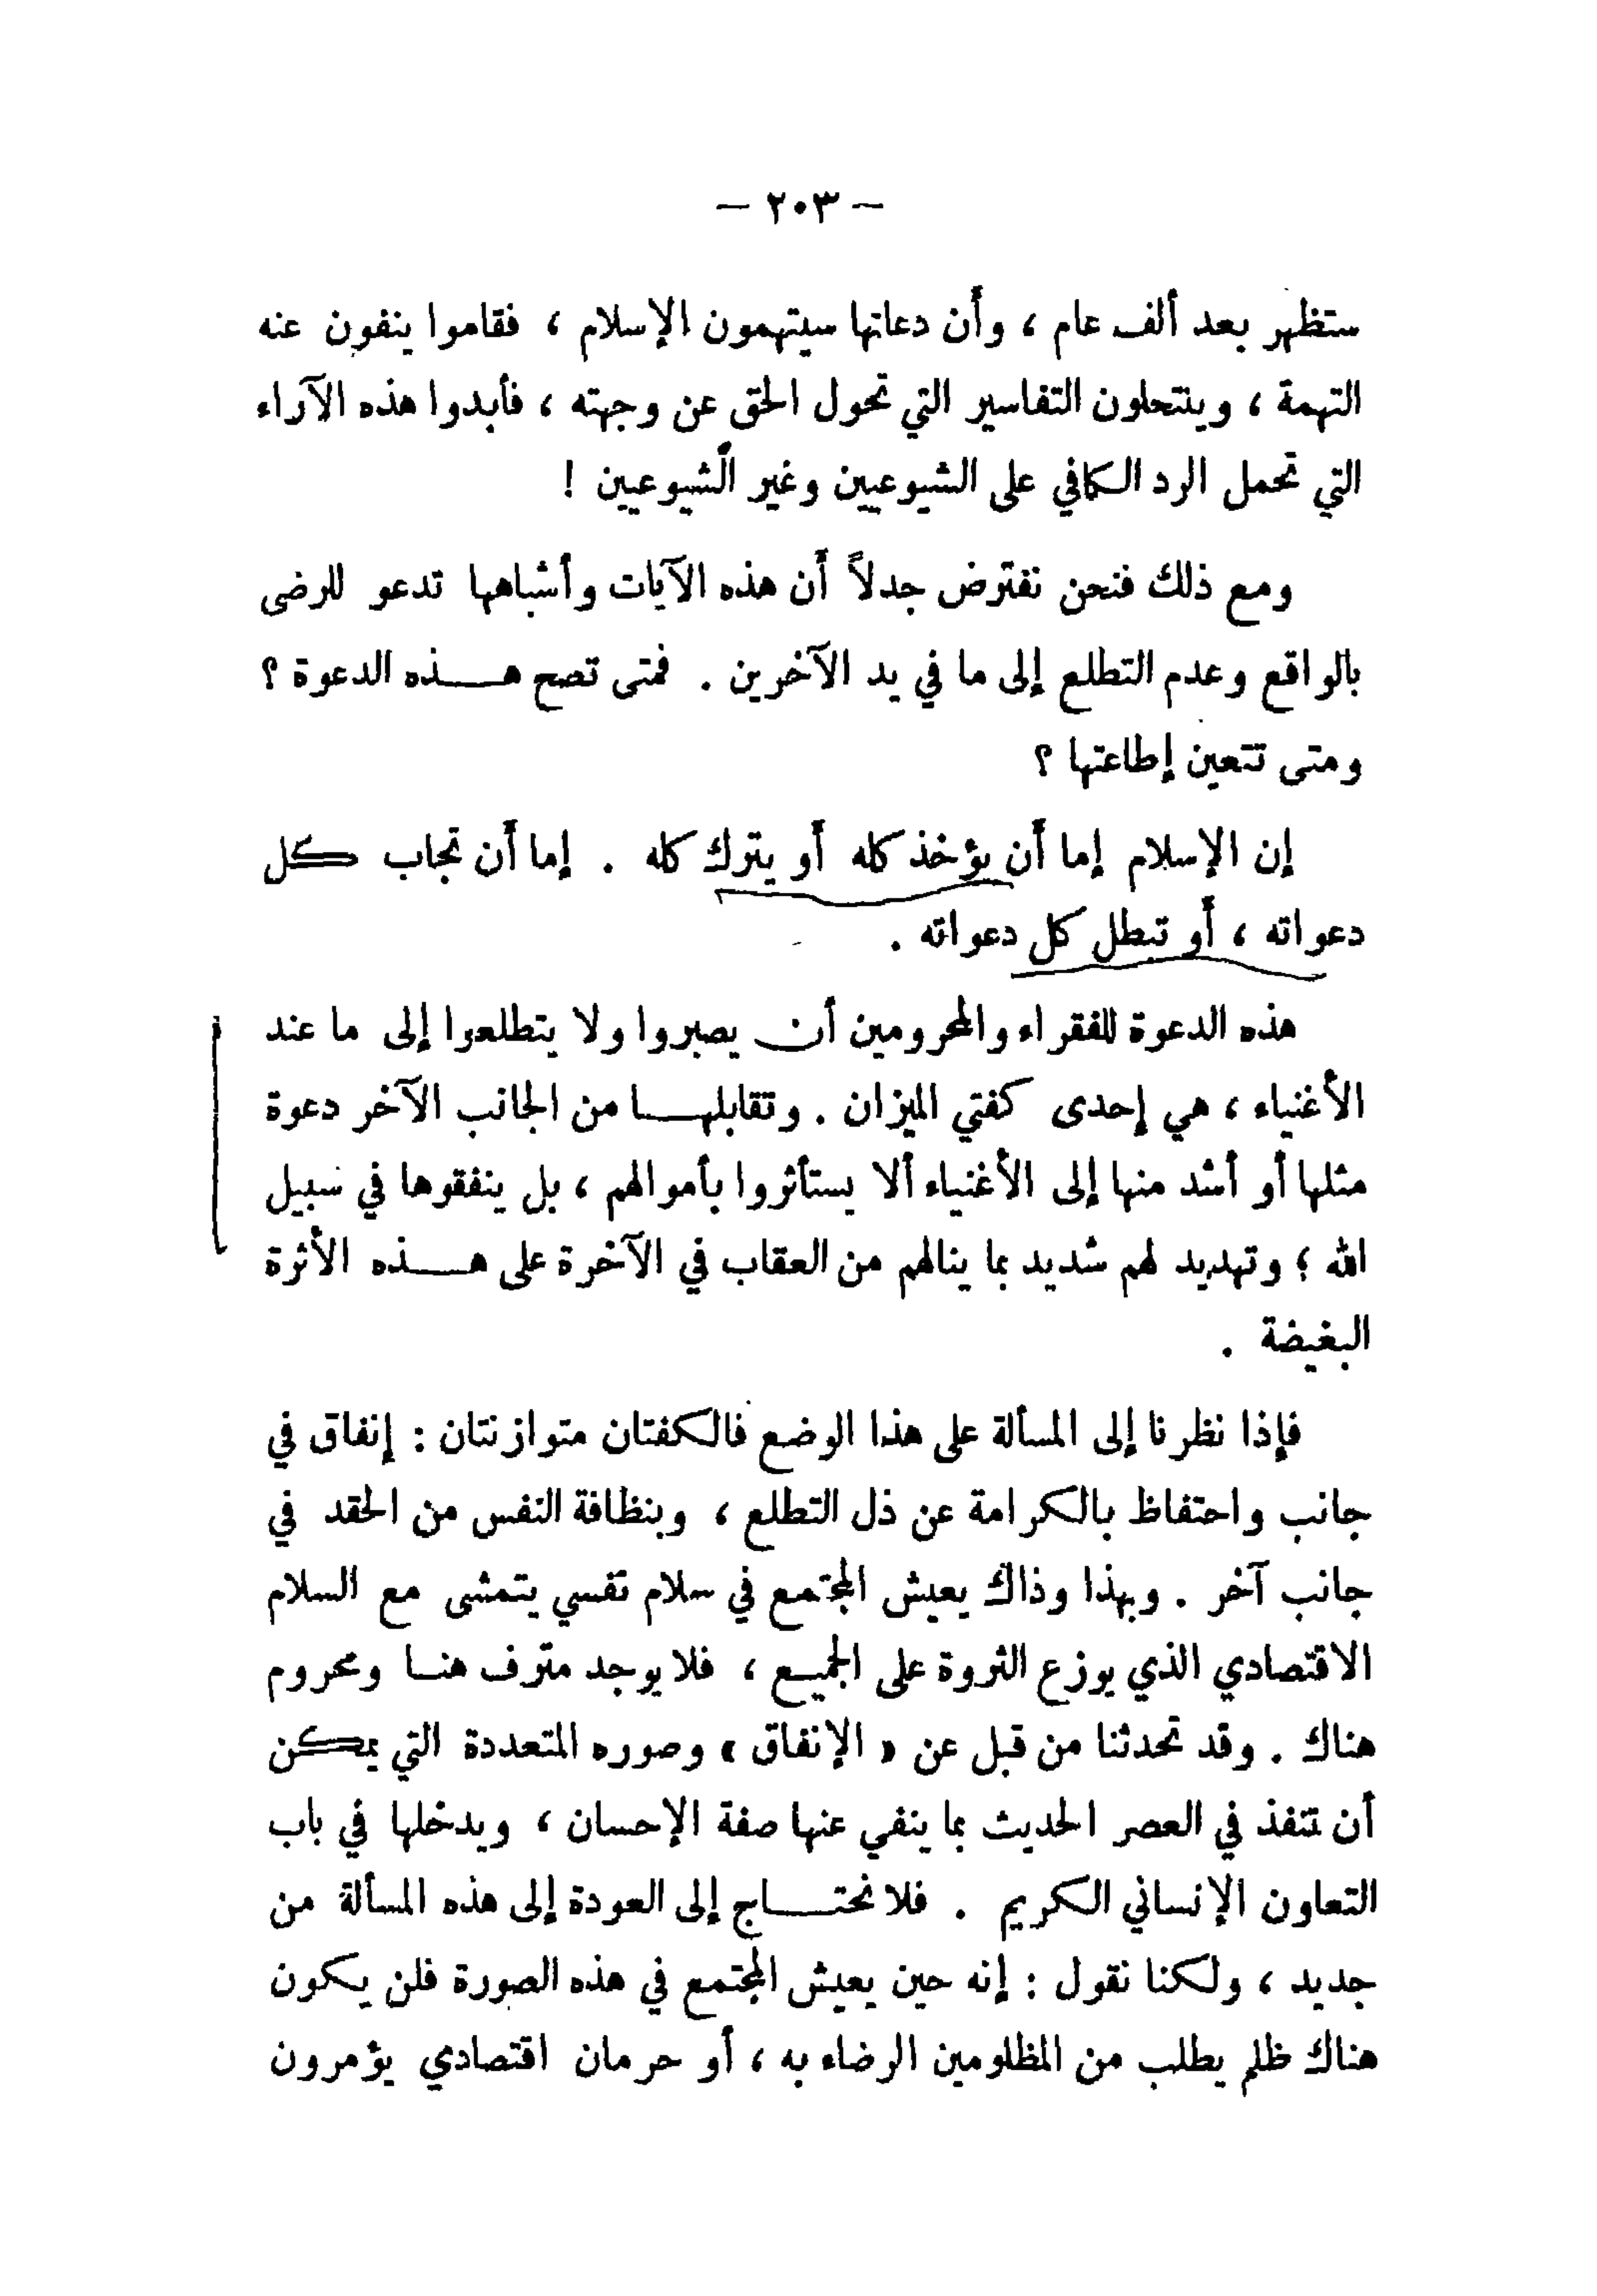 — ٢٠٣ —
ستظهر بعد ألف عام ، وأن دعاتها سيتهمون الإسلام ، فقاموا ينفون عنه
التهمة ، وينتحلون التفاسير التي تحول الحق عن وجهته ، فأبدوا هذه الآراء
التي تحمل الرد الكافي على الشيوعيين وغير الشيوعيين !
ومع ذلك فنحن نفترض جدلاً أن هذه الآيات وأشباهها تدعو للرضى
بالواقع وعدم التطلع إلى ما في يد الآخرين . فمتى تصح هـــذه الدعوة ؟
ومتى تتعين إطاعتها ؟
إن الإسلام إما أن يؤخذ كله أو يترك كله . إما أن تجاب كل
دعواته ، أو تبطل كل دعواته .
هذه الدعوة للفقراء والمحرومين أن يصبروا ولا يتطلعوا إلى ما عند
الأغنياء ، هي إحدى كفتي الميزان . وتقابلهـــا من الجانب الآخر دعوة
مثلها أو أشد منها إلى الأغنياء ألا يستأثروا بأموالهم ، بل ينفقوها في سبيل
الله ؛ وتهديد لهم شديد بما ينالهم من العقاب في الآخرة على هـــذه الأثرة
البغيضة .
فإذا نظرنا إلى المسألة على هذا الوضع فالكفتان متوازنتان : إنفاق في
جانب واحتفاظ بالكرامة عن ذل التطلع ، وبنظافة النفس من الحقد في
جانب آخر . وبهذا وذاك يعيش المجتمع في سلام نفسي يتمشى مع السلام
الاقتصادي الذي يوزع الثروة على الجميـع ، فلا يوجد مترف هنـا ومحروم
هناك . وقد تحدثنا من قبل عن « الإنفاق » وصوره المتعددة التي يمكن
أن تنفذ في العصر الحديث بما ينفي عنها صفة الإحسان ، ويدخلها في باب
التعاون الإنساني الكريم . فلا نحتـــاج إلى العودة إلى هذه المسألة من
جديد ، ولكنا نقول : إنه حين يعيش المجتمع في هذه الصورة فلن يكون
هناك ظلم يطلب من المظلومين الرضاء به ، أو حرمان اقتصادي يؤمرون